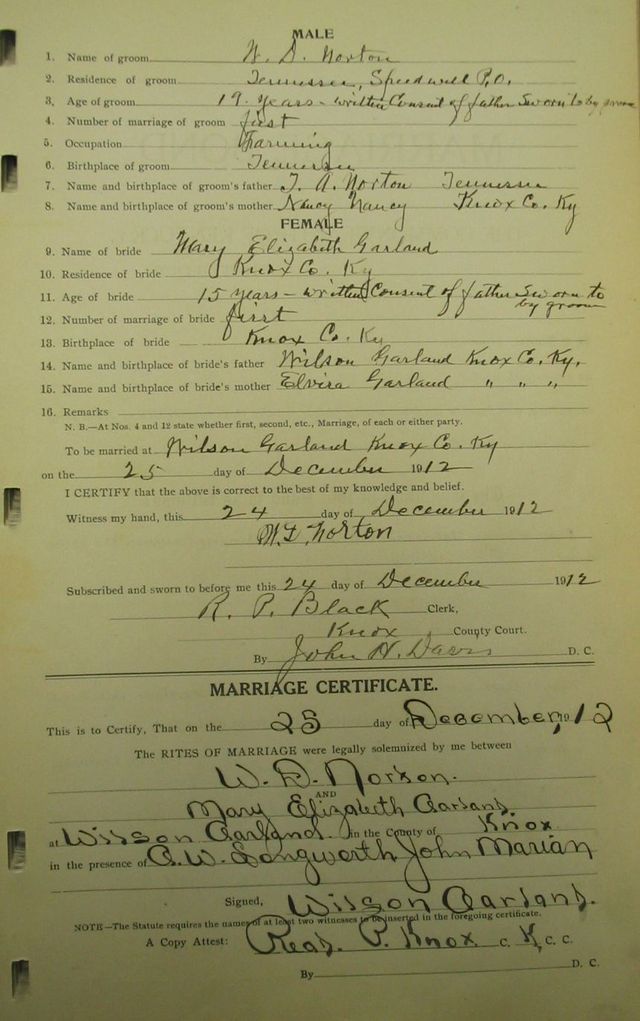 MALE
1. Name of groom W. D. Norton
2. Residence of groom Tennessee, Speedwell P.O.
3, Age of groom 19 years - written Consent of father Sworn to by groom
4. Number of marriage of groom first
5. Occupation Farming
6. Birthplace of groom Tennessee
7. Name and birthplace of groom's father T. A. Norton Tennessee
8. Name and birthplace of groom's mother Nancy Nancy Knox Co. Ky
FEMALE
9. Name of bride Mary Elizabeth Garland
10. Residence of bride Knox Co. Ky
11. Age of bride 15 years - written Consent of father Sworn to
by groom
12. Number of marriage of bride first
13. Birthplace of bride Knox Co. Ky
14. Name and birthplace of bride's father Wilson Garland Knox Co. Ky.
15. Name and birthplace of bride's mother Elvira Garland " " "
16. Remarks
N. B.—At Nos. 4 and 12 state whether first, second, etc., Marriage, of each or either party.
To be married at Wilson Garland Knox Co. Ky
on the 25 day of December 1912
I CERTIFY that the above is correct to the best of my knowledge and belief.
Witness my hand, this 24 day of December 1912
W. D. Norton
Subscribed and sworn to before me this 24 day of December 1912
R. P. Black Clerk,
Knox County Court.
By John H. Davis D. C.
MARRIAGE CERTIFICATE.
This is to Certify, That on the 25 day of December, 1912
The RITES OF MARRIAGE were legally solemnized by me between
W. D. Norton.
AND
Mary Elizabeth Garland.
at Wilson Garland. in the County of Knox
in the presence of Longworth John Marian
Signed, Wilson Garland.
NOTE—The Statute requires the names of at least two witnesses to be inserted in the foregoing certificate.
A Copy Attest: P. Knox C. K. C. C.
By D. C.